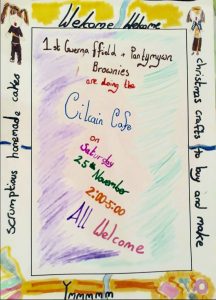 Welcome Welcome
1st Gwernaffield + Pantymwyn
Brownies
are doing the
Cilcain Cafe
on
Saturday
25th November
2:00-5:00
All Welcome
Scrumptious homemade cakes
christmas crafts to buy and make
Ymmmmm